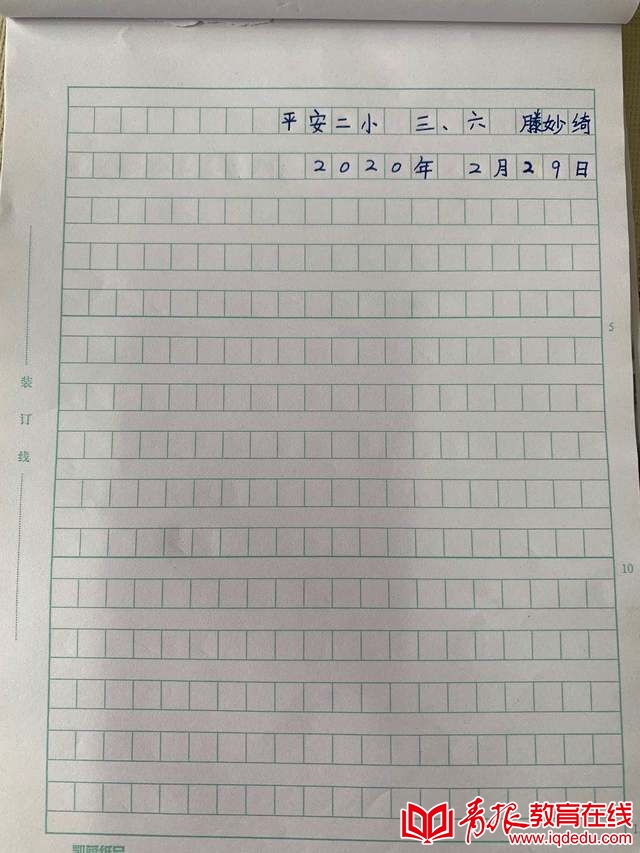 平安二小 三、六 滕妙绮
2020年 2月29日
5
装订线
10
青报教育在线
www.iqdedu.com